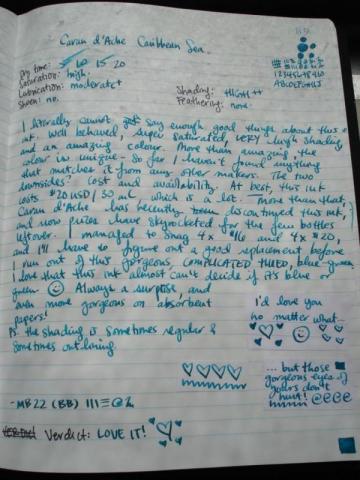 Caran d'Ache Caribbean Sea.
Dry time: 5 10 15 20
Saturation: high.
Lubrication: moderate+
Sheen: no.
Shading: HIGH++
Feathering: none.
1234567890
I literally cannot say enough good things about this
ink. Well behaved, super saturated VERY high shading
and an amazing colour. More than amazing, the
colour is unique - so far I haven't found anything
that matches it from any other makers. The two
downsides: cost and availability. At best, this ink
costs $20USD/30 mL, which is a lot. More than that,
Caran d'Ache has recently been discontinued this ink,
and now prices have skyrocketed for the few bottles
leftover. I managed to snag 4x and 4x
and I'll have to figure out a good replacement before
I run out of this gorgeous COMPLICATED HUED, blue-green
I love that this ink almost can't decide if it's blue or
green. Always a surprise, and
even more gorgeous on absorbent
papers!
PS the shading is sometimes regular &
sometimes outlining.
I'd love you
no matter what...
... but those
gorgeous eyes of
yours don't
hurt! @@@@
-MB22 (BB)
Verdict: LOVE IT!